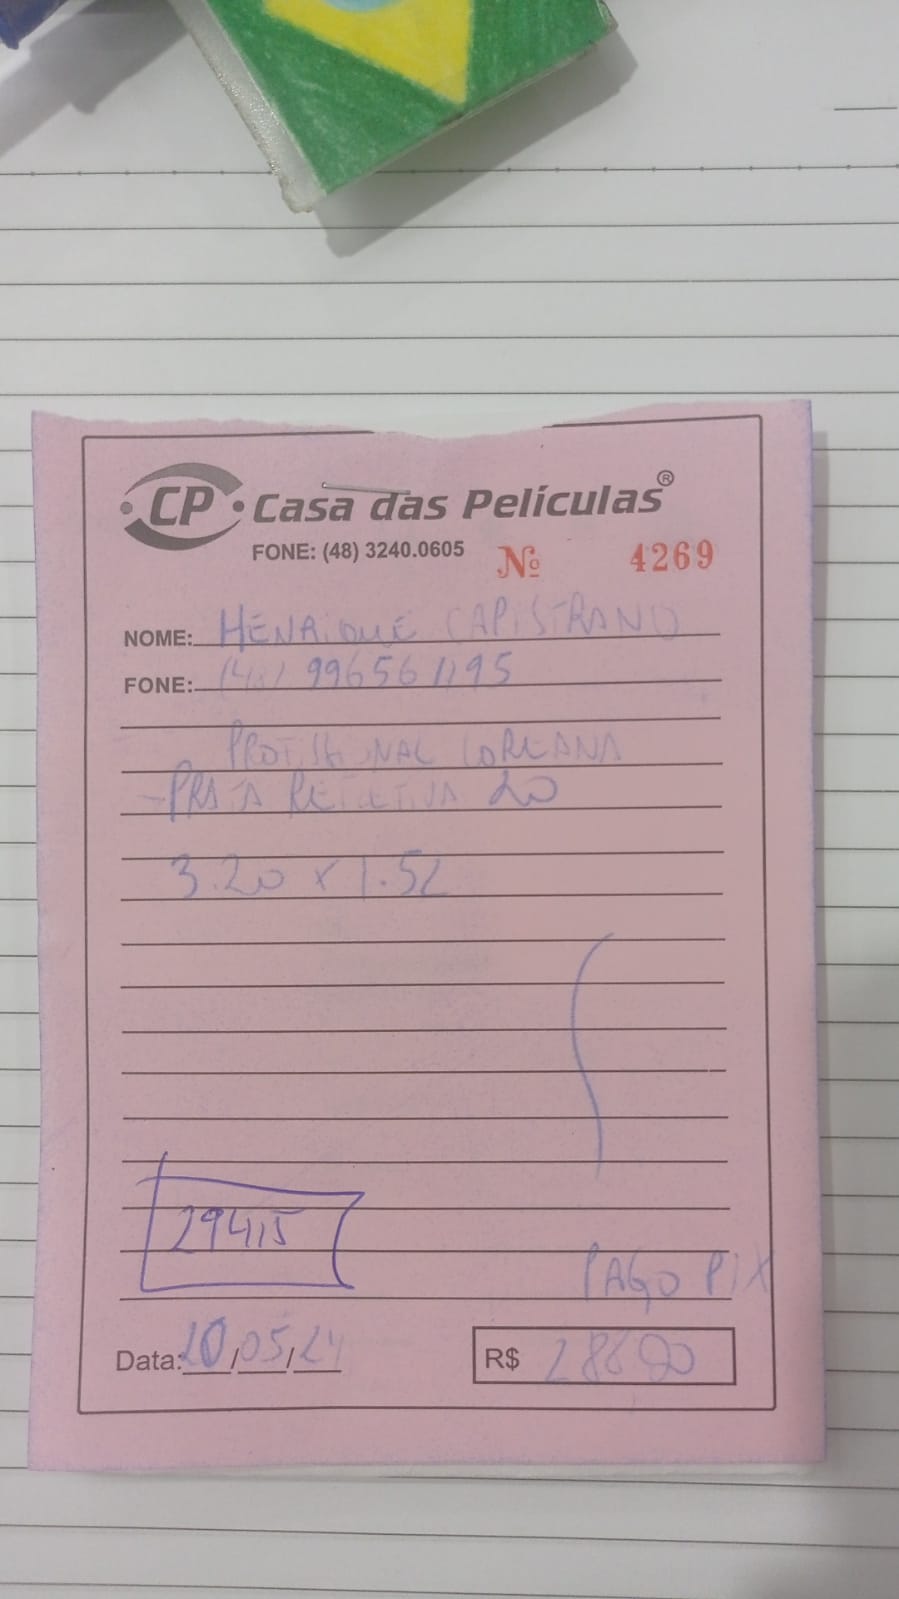 CP Casa das Películas®
FONE: (48) 3240.0605 Nº 4269
NOME: HENRIQUE CAPISTRANO
FONE: (48) 996561195
PROFISSIONAL COREANA
- PRATA REFLETIVA 20
3.20 x 1.52
29415
PAGO PIX
Data: 20/05/24 R$